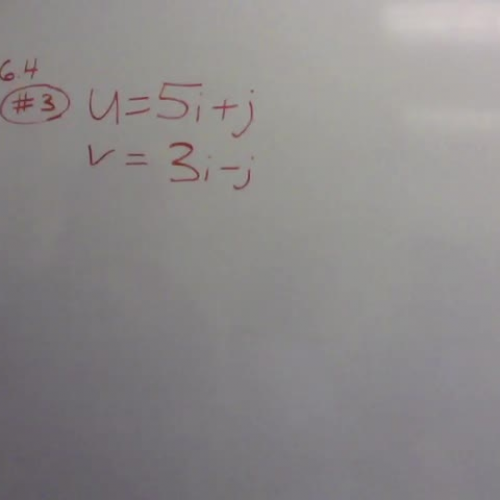 6.4
#3 u=5i+j
v=3i-j